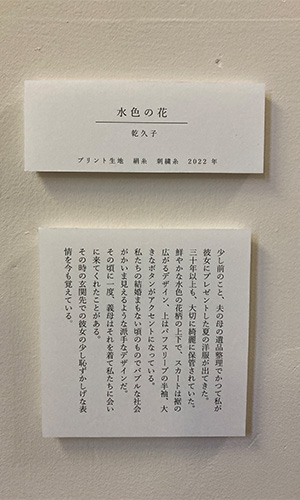 水色の花
乾久子
プリント生地　絹糸　刺繍糸　2022 年
少し前のこと、夫の母の遺品整理でかつて私が
彼女にプレゼントした夏の洋服が出てきた。
三十年以上も、大切に綺麗に保管されていた。
鮮やかな水色の花柄の上下で、スカートは裾の
広がるデザイン、上はパフスリーブの半袖、大
きなボタンがアクセントになっている。
私たちの結婚まもない頃のものでバブルな社会
がかいま見えるような派手なデザインだ。
その頃に一度、義母はそれを着て私たちに会い
に来てくれたことがある。
その時の玄関先での彼女の少し恥ずかしげな表
情を今も覚えている。